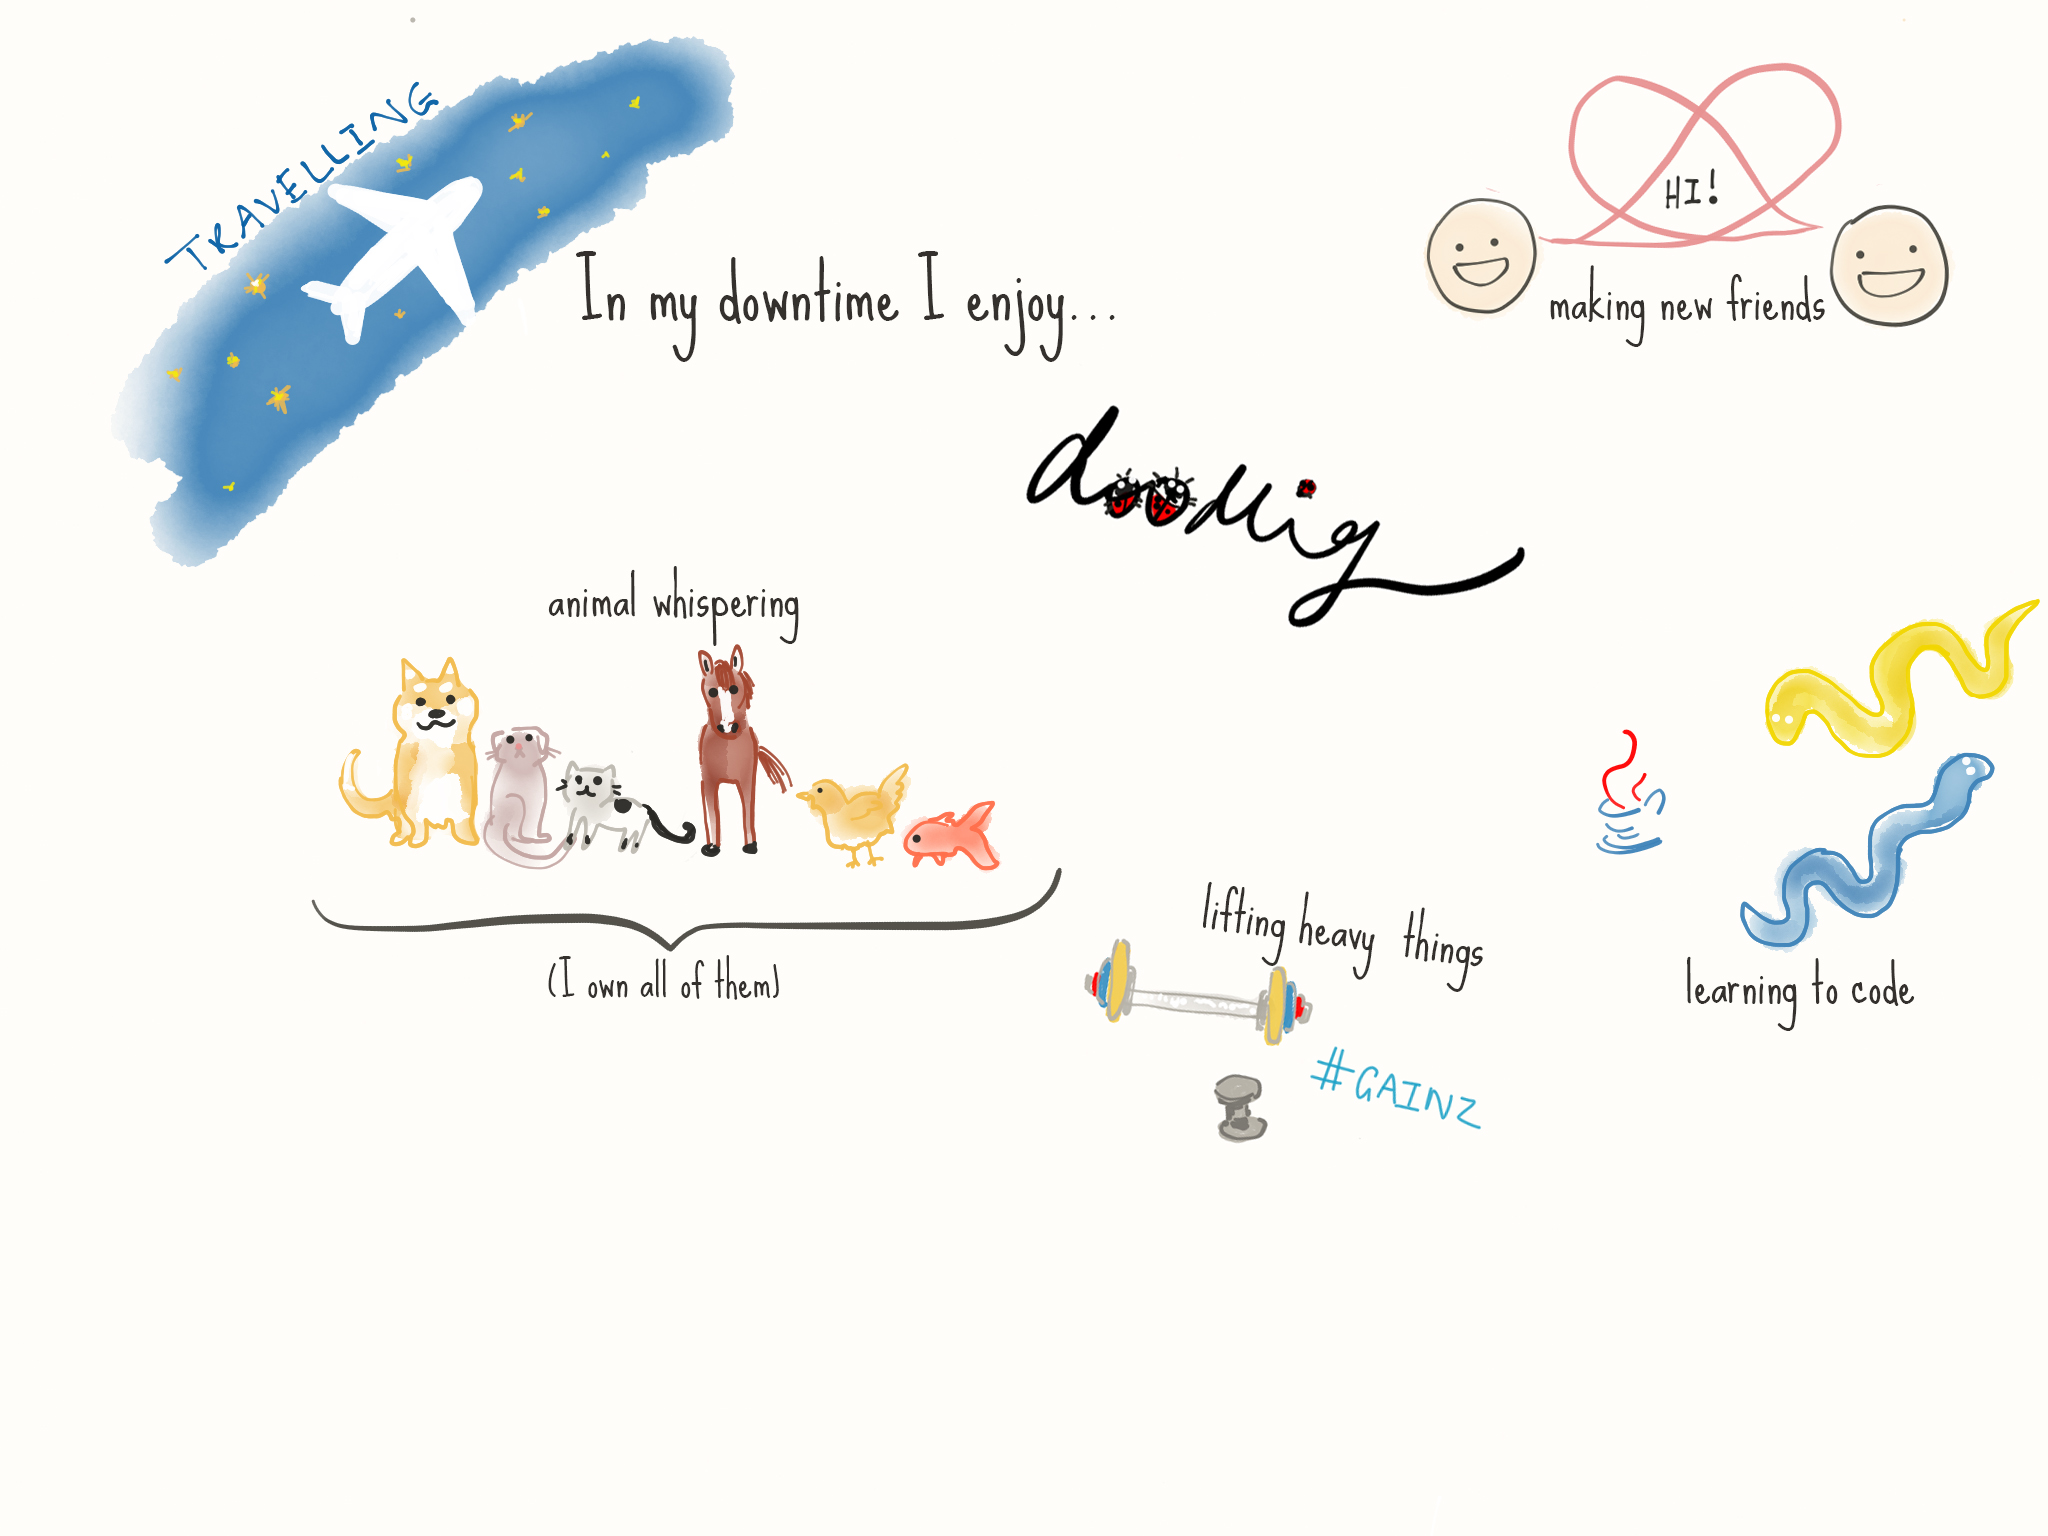 TRAVELLING
In my downtime I enjoy...
HI!
making new friends
doodlig
animal whispering
(I own all of them)
lifting heavy things
#GAINZ
learning to code